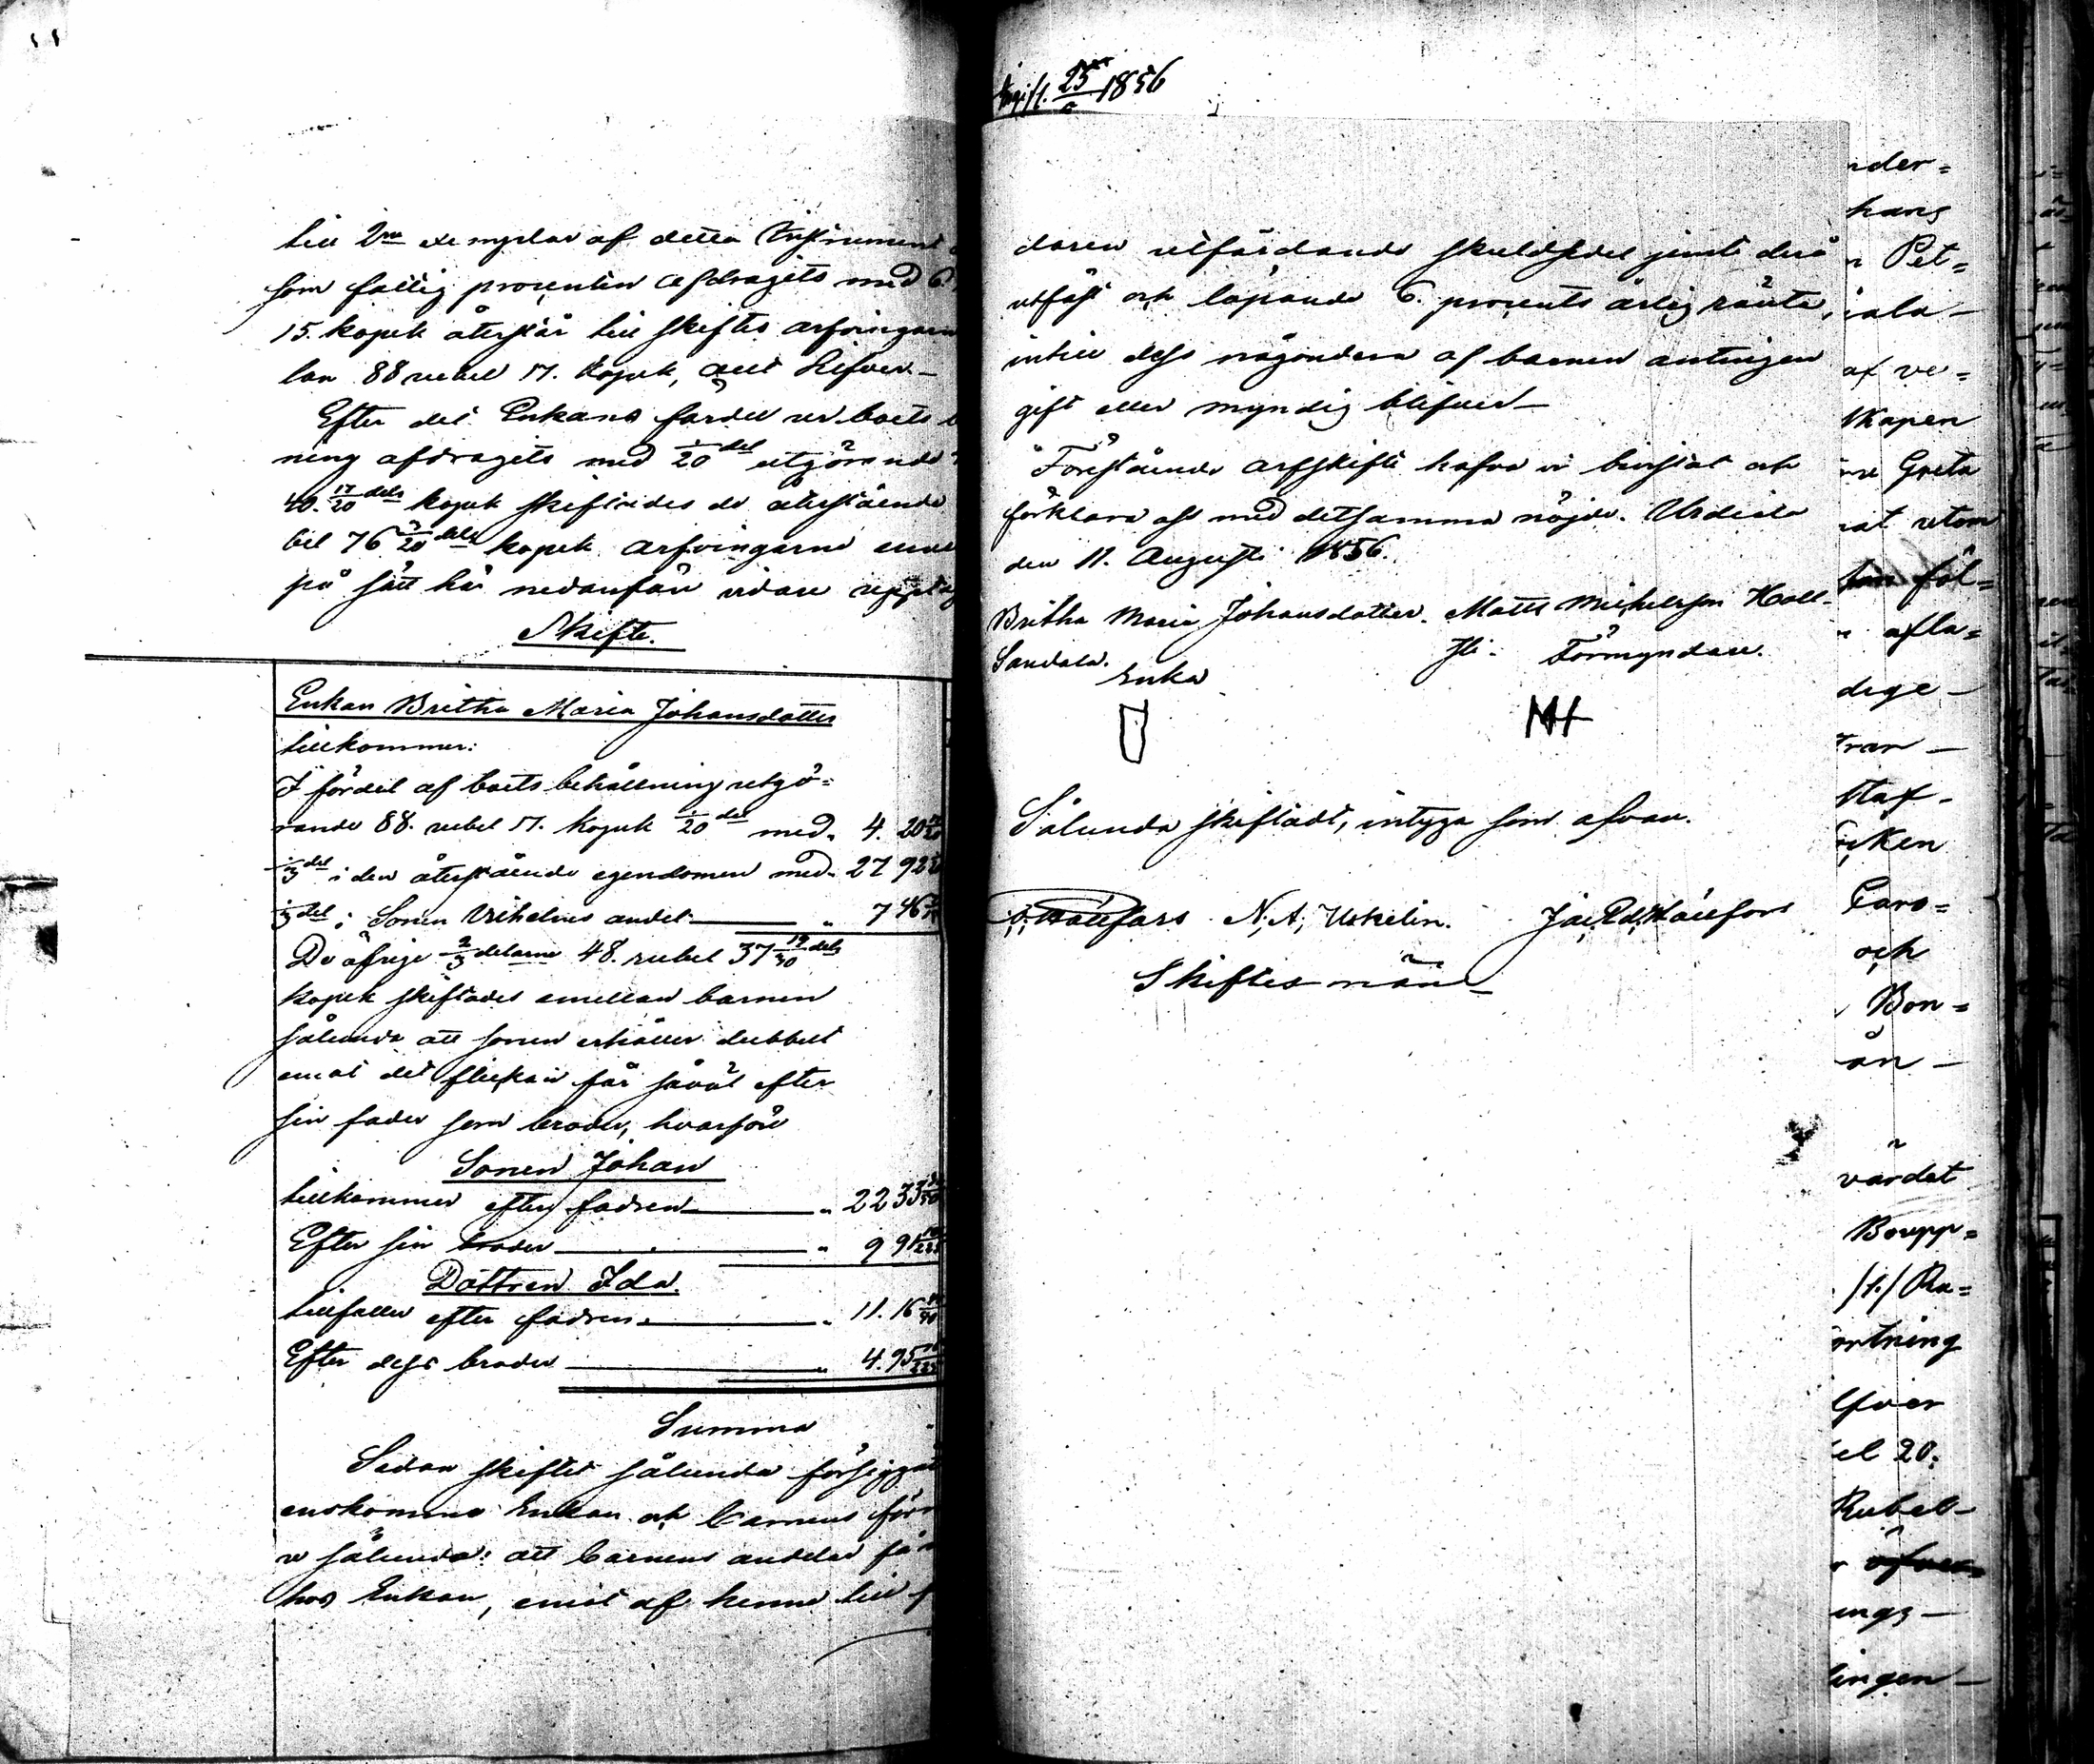 till 2ne exemplar af detta Instrument
som fattig procenten afdragits med 6
15. kopek återstår till skiftes arfvingarn
lan 88 rubel 17. kopek, allt Silfver-
Efter det Enkans fördel ur boets
ning afdragits med 1/20del utgörande
40. 17/20dels kopek skiftades de återstående
bel 76 3/20dels kopek arfvingarne emel
på sätt här nedanföre vidare upptag
Skifte.
Enkan Britha Maria Johansdotter
tillkommer:
I fördel af boets behållning utgö=
rande 88. rubel 17. kopek 1/20del med. 4. 20
1/3del i den återstående egendomen med. 27 92
1/3del i Sonen Vilhelms andel " 7 46
De öfrige 2/3delarne 48. rubel 37 19/30dels
kopek skiftades emellan barnen
sålunda att sonen erhåller dubbelt
emot det flickan får såväl efter
sin fader som broder, hvarföre
Sonen Johan
tillkommer efter fadren " 22 33
Efter sin broder " 9 91
Dottren Ida.
tillfaller efter fadren. " 11. 16
Efter dess broder " 4. 95
Summa "
Sedan skiftet sålunda försiggåt
enskomme Enkan och barnens för
e sålunda: att barnens andelar få
hos Enkan, emot af henne till
Ingift. 25 1856
daren utfärdande skuldsedel jemte deri
utfäst och löpande 6. procents årlig ränta,
intill dess någondera af barnen antingen
gift eller myndig blifver-
Förestående arfskifte hafva vi bivistat och
förklara oss med detsamma nöjde. Urdiala
den 11. Augusti 1856.
Britha Maria Johansdotter. Matts Michelsson Hall-
Sandala. Enka Förmyndare.
M+
Sålunda skiftadt, intyga som ofvan.
Hållfors N. A. Uskelin. Jac. Ed. Hållfors
Skiftesmän
nder=
hans
n Pet=
iala-
af ve=
skapen
Greta
nat utom
föl=
afla=
dige-
ran-
staf-
Caro=
och
Bon=
än-
värdet
Boupp=
/1./ Ru=
ortning
lfver
el 20:
Rubel-
ings-
lingen-